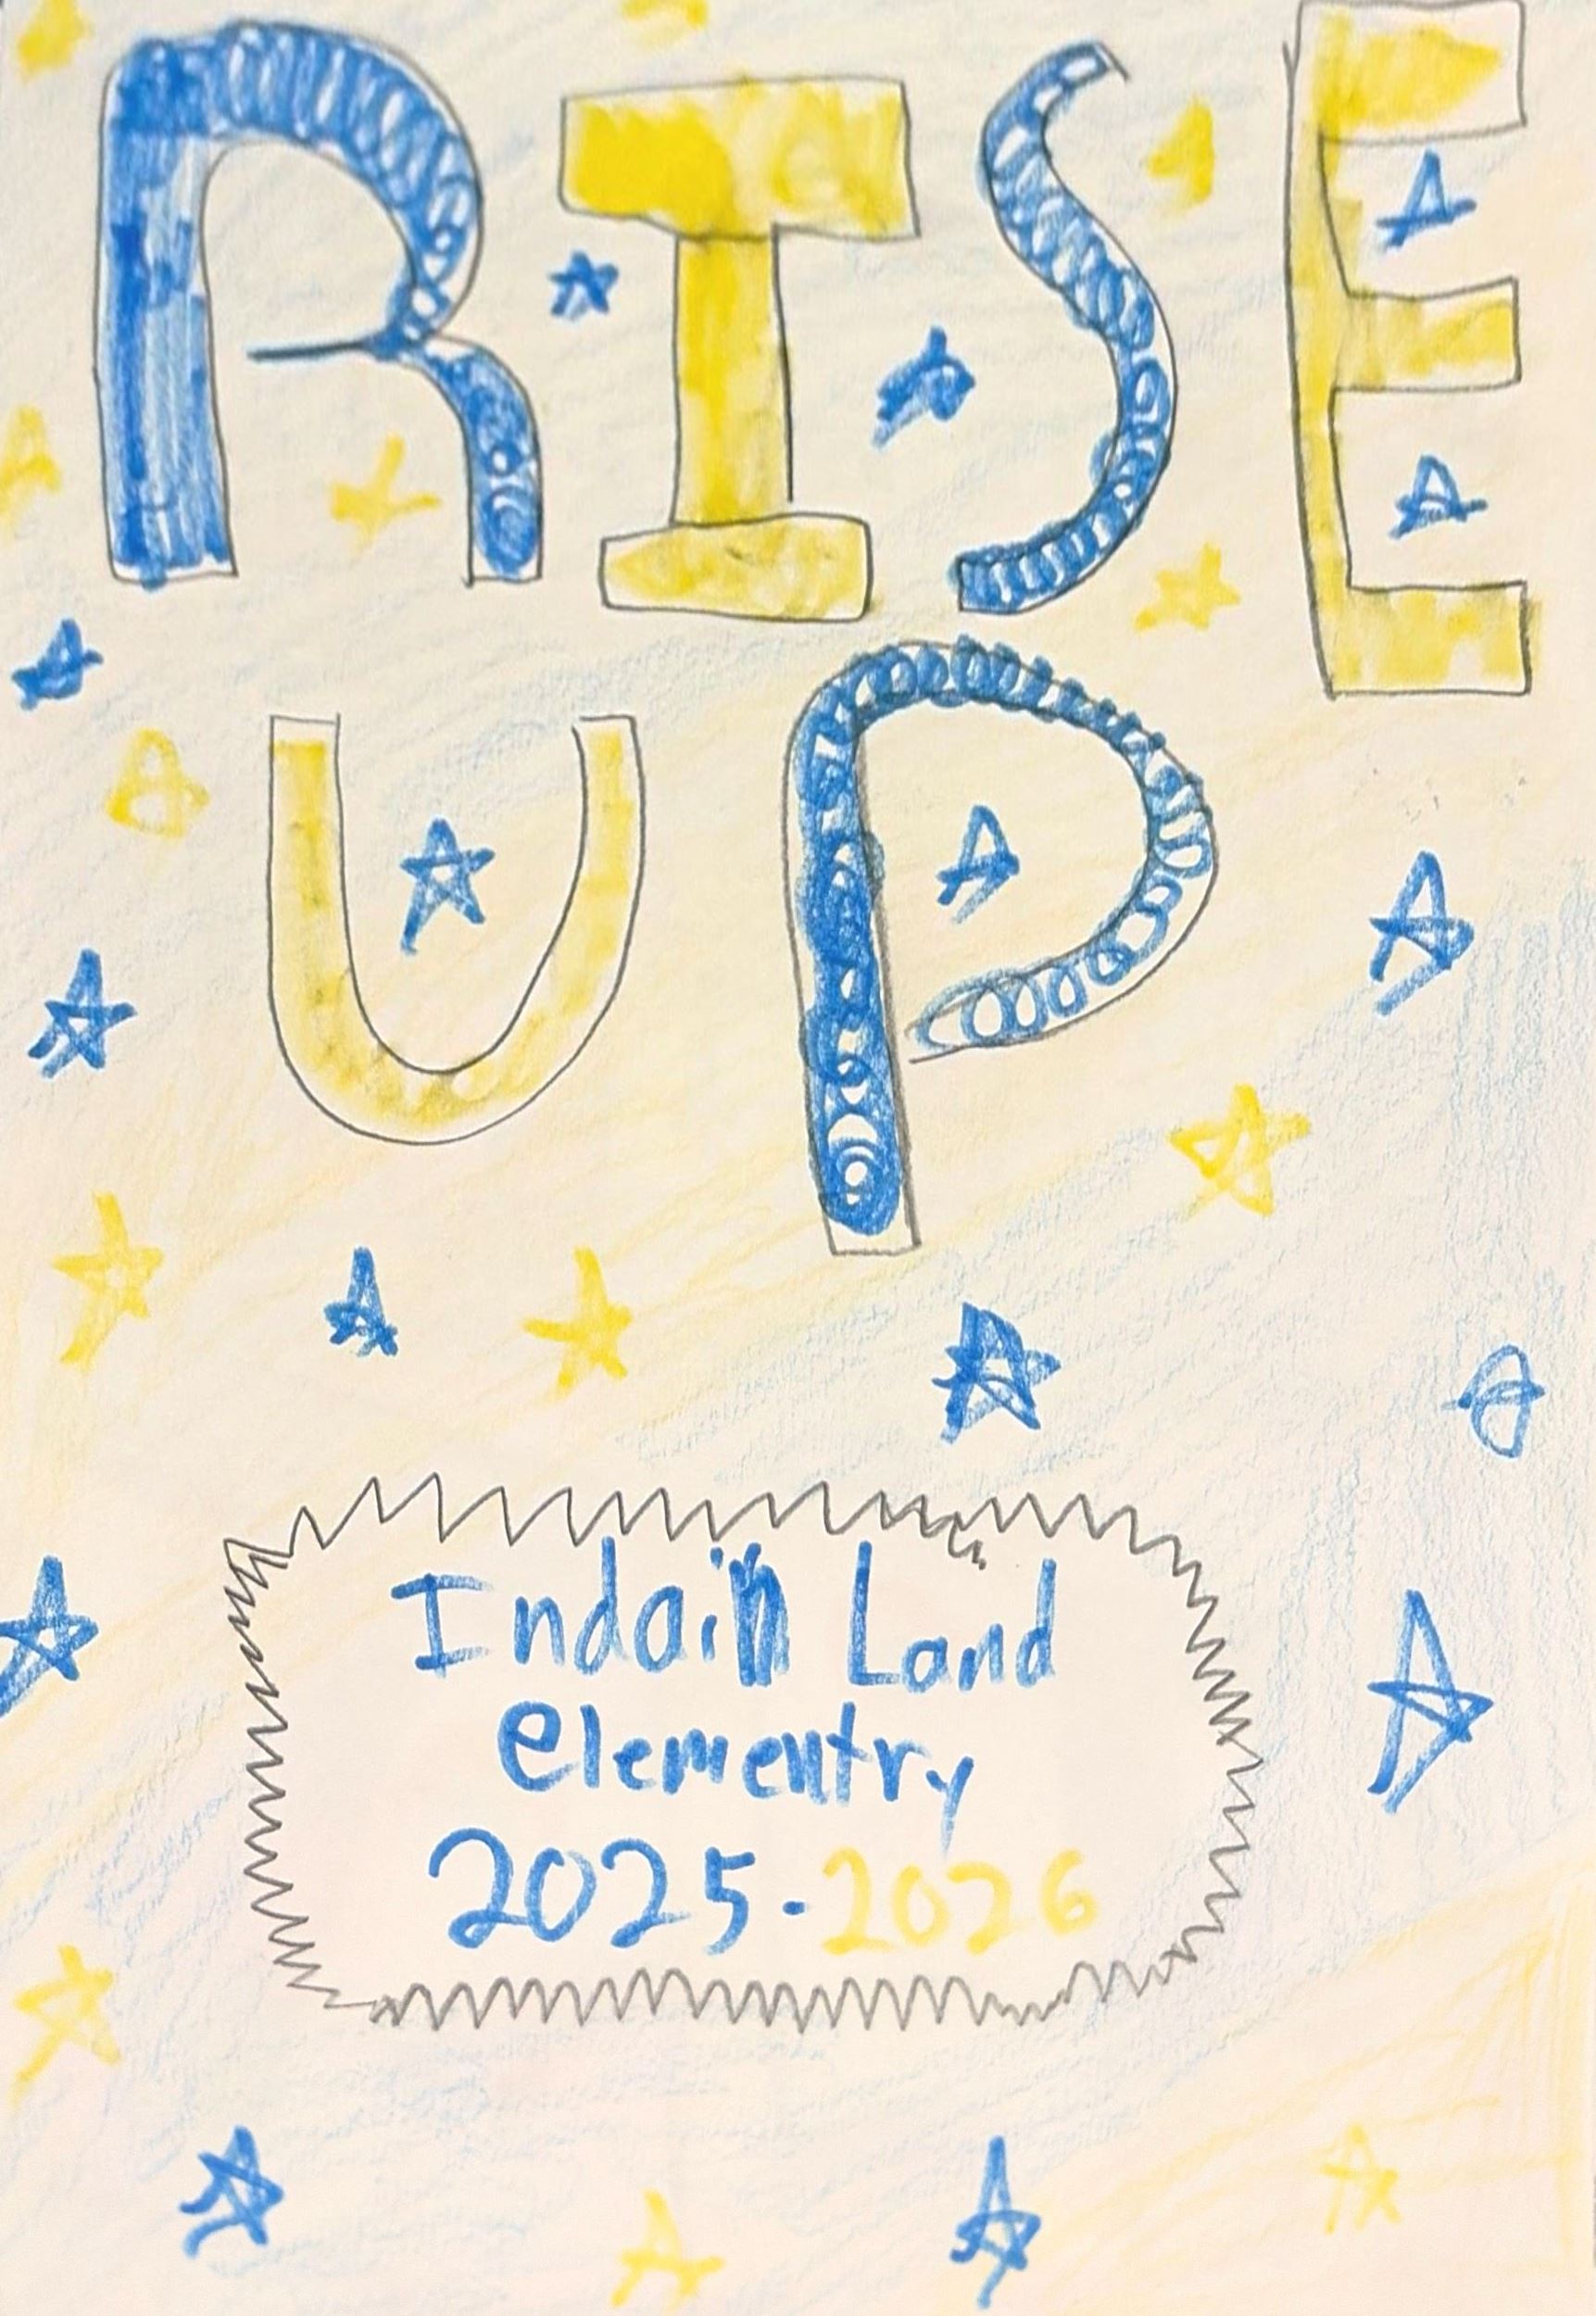 RISE
UP
Indain Land
elementry
2025-2026